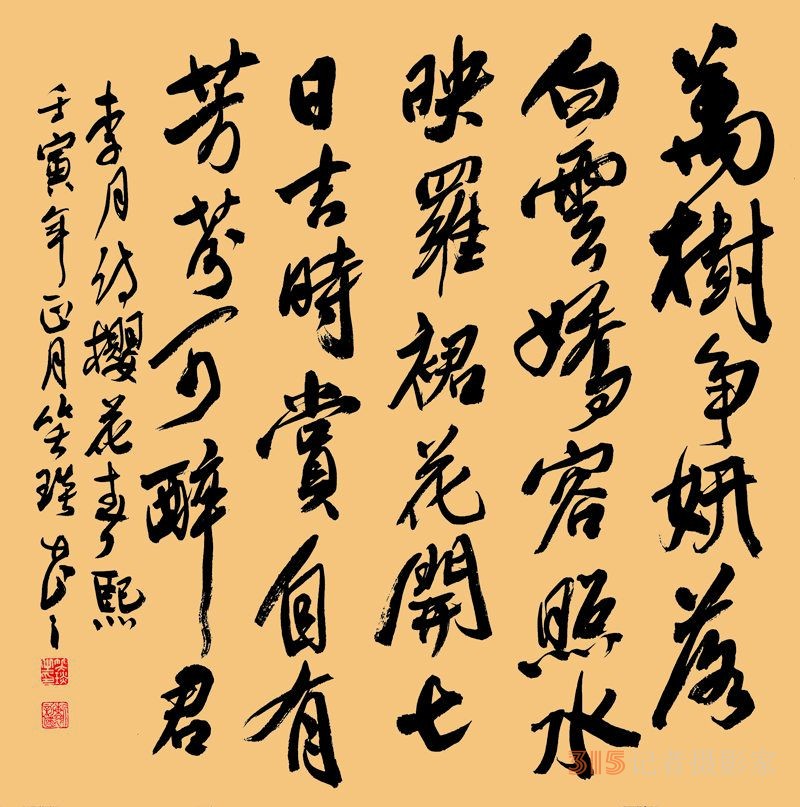 萬樹争妍落
白雲嬌容照水
映羅裙花開七
日吉時賞自有
芳芬可醉君
李月诗櫻花熙
壬寅年正月笑琰書
315记者摄影家